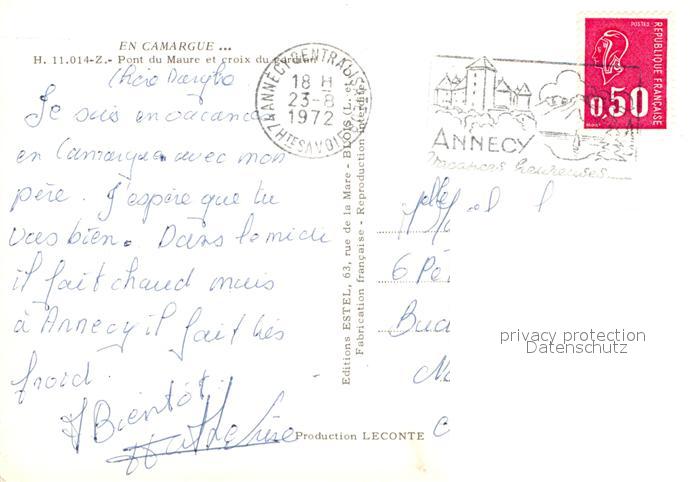 EN CAMARGUE ...
H. 11.014-Z.- Pont du Maure et croix du gardian
Je suis en vacances
en Camargue avec mon
père. J'espère que tu
vas bien. Dans le midi
il fait chaud mais
à Annecy il fait très
froid.
A Bientôt
Production LECONTE
Editions ESTEL, 63, rue de la Mare - BLOIS (L. et
Fabrication française - Reproduction interdite
74 ANNECY CENTRAL
18 H
23-8
1972
HTE SAVOIE
ANNECY
Vacances heureuses
POSTES
REPUBLIQUE FRANÇAISE
0,50
6
privacy protection
Datenschutz